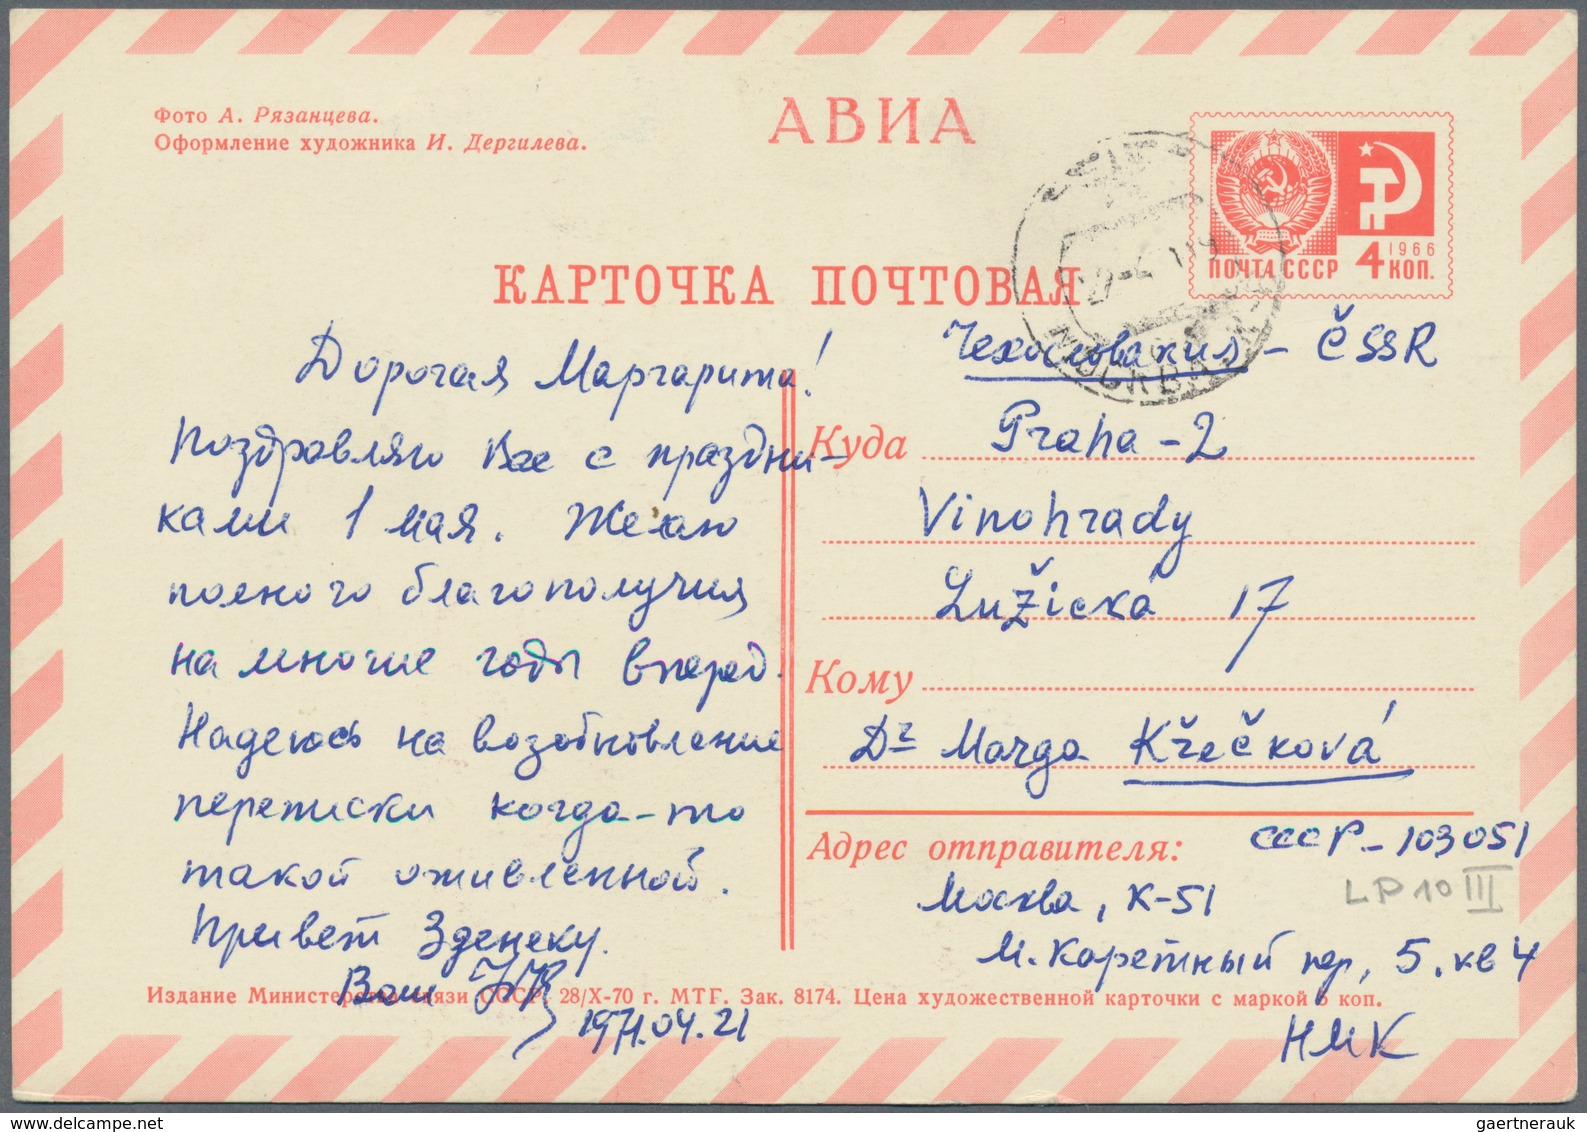 Фото А. Рязанцева.
Оформление художника И. Дергилева.
АВИА
ПОЧТА СССР 4 КОП.
1966
КАРТОЧКА ПОЧТОВАЯ
МОСКВА
Дорогая Маргарита!
Поздравляю Вас с праздни-
ками 1 мая. Желаю
полного благополучия
на многие годы вперед.
Надеюсь на возобновление
переписки когда-то
такой оживленной.
Привет Зденеку.
Ваш
1971.04.21
Чехословакия - ČSSR
Куда Praha-2
Vinohrady
Lužická 17
Кому
Dr Marga Křečková
Адрес отправителя: СССР-103051
Москва, К-51
LP 10 III
М. Каретный пер, 5. кв 4
Издание Министерства связи СССР. 28/X-70 г. МТГ. Зак. 8174. Цена художественной карточки с маркой 5 коп.
НМК
gaertnerauk